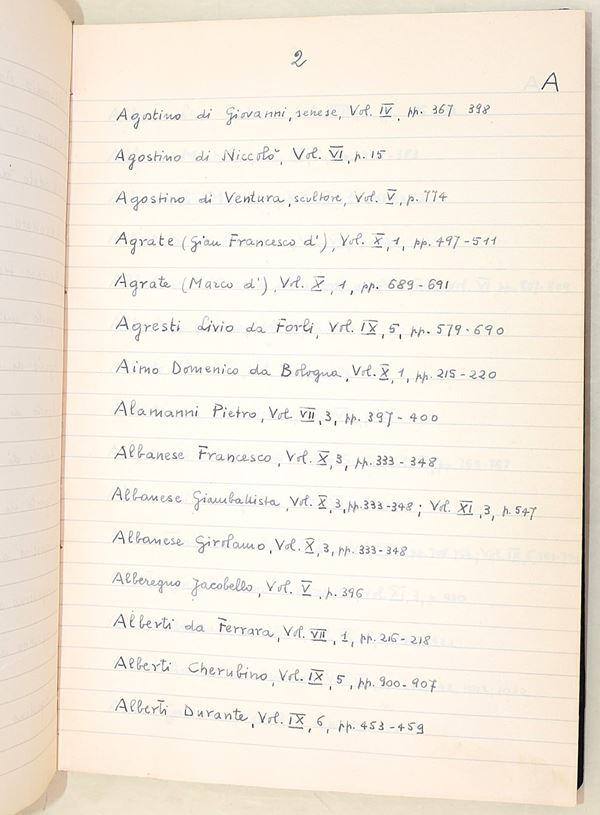 2
A
Agostino di Giovanni, senese, Vol. IV, pp. 367 398
Agostino di Niccolò, Vol. VI, p. 15
Agostino di Ventura, scultore, Vol. V, p. 774
Agrate (Gian Francesco d'), Vol. X, 1, pp. 497-511
Agrate (Marco d'), Vol. X, 1, pp. 689-691
Agresti Livio da Forlì, Vol. IX, 5, pp. 579-690
Aimo Domenico da Bologna, Vol. X, 1, pp. 215-220
Alamanni Pietro, Vol. VII, 3, pp. 397-400
Albanese Francesco, Vol. X, 3, pp. 333-348
Albanese Giambattista, Vol. X, 3, pp. 333-348; Vol. XI, 3, p. 547
Albanese Girolamo, Vol. X, 3, pp. 333-348
Alberegno Jacobello, Vol. V, p. 396
Alberti da Ferrara, Vol. VII, 1, pp. 216-218
Alberti Cherubino, Vol. IX, 5, pp. 900-907
Alberti Durante, Vol. IX, 6, pp. 453-459